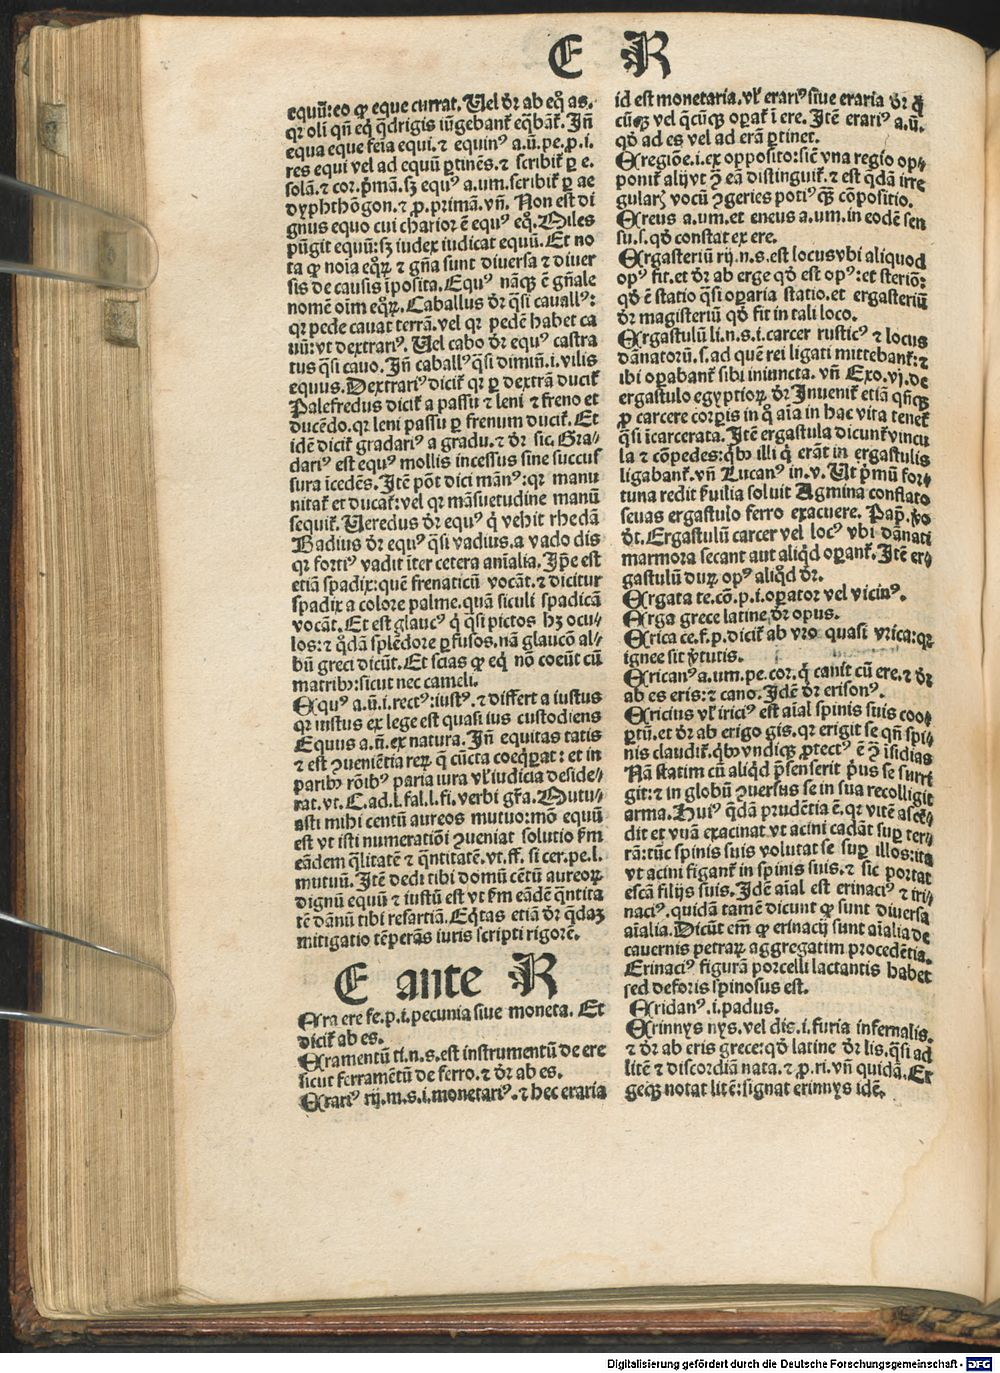 E R
equū:eo ꝙ eque currat.Uel dr̄ ab eqͦ as.
qꝛ oli qn̄ eq̄ q̄drigis iūgebanť eq̄bāť.Jn̄
equa eque feīa equi.⁊ equinꝰ a.ū.pe.ꝓ.i.
res equi vel ad equū ꝑtinēs.⁊ scribiť ꝑ e.
solā.⁊ cor.pͥmā.sꝫ equꝰ a.um.scribiť ꝑ ae
dyphthōgon.⁊ ꝓ.primā.vn̄. Non est di
gnus equo cui charior ē equꝰ eqͦ.Miles
pūgit equū:sꝫ iudex iudicat equū.Et no
ta ꝙ noīa eqͦꝝ ⁊ gn̄a sunt diuersa ⁊ diuer
sis de causis īposita.Equꝰ nāqꝫ ē gn̄ale
nomē oīm eqͦꝝ.Caballus dr̄ qͣsi cauallꝰ:
qꝛ pede cauat terrā.vel qꝛ pedē habet ca
uū:vt dextrariꝰ. Uel cabo dr̄ equꝰ castra
tus qͣsi cauo.Jn̄ caballꝰ qͣsi dimiñ.i.vilis
equus.Dextrariꝰ diciť qꝛ ꝑ dextrā duciť
Palefredus diciť a passu ⁊ leni ⁊ freno et
ducēdo.qꝛ leni passu ꝑ frenum duciť. Et
idē diciť gradariꝰ a gradu.⁊ dr̄ sic.Gra-
dariꝰ est equꝰ mollis incessus sine succus
sura īcedēs.Jtē pōt dici mānꝰ:qꝛ manu
nitať et ducať:vel qꝛ māsuetudine manū
sequiť.Ueredus dr̄ equꝰ qͥ vehit rhedā
Badius dr̄ equꝰ qͣsi vadius.a vado dis
qꝛ fortiꝰ vadit īter cetera aīalia.Jp̄e est
etiā spadix:quē frenaticū vocāt.⁊ dicitur
spadix a colore palme.quā siculi spadicā
vocāt.Et est glaucꝰ qͥ qͣsi pictos hꝫ ocu-
los:⁊ qͦdā splēdore ꝑfusos.nā glaucō al-
bū greci dicūt.Et scias ꝙ eqͥ nō coeūt cū
matribꝰ:sicut nec cameli.
Equꝰ a.ū.i.rectꝰ:iustꝰ.⁊ differt a iustus
qꝛ iustus ex lege est quasi ius custodiens
Equus a.ū.ex natura.Jn̄ equitas tatis
⁊ est ꝯueniētia reꝝ q̄ cūcta coeq̄ꝑat: et in
paribꝰ rōibꝰ paria iura vꝉ iudicia deside-
rat.vt.C.ad.l.fal.l.fi.verbi gr̄a.Mutu-
asti mihi centū aureos mutuo:mō equū
est vt isti numeratiōi ꝯueniat solutio ẜm
eādem q̄litatē ⁊ q̄ntitatē.vt.ff. si cer.pe.l.
mutuū. Jtē dedi tibi domū cētū aureoꝝ
dignū equū ⁊ iustū est vt ẜm eādē q̄ntita
tē dānū tibi resartiā.Eqͥtas etiā dr̄ qͣdaꝫ
mitigatio tēperās iuris scripti rigorē.
E ante R
Era ere fe.p.i.pecunia siue moneta. Et
diciť ab es.
Eramentū ti.n.s.est instrumentū de ere
sicut ferramētū de ferro.⁊ dr̄ ab es.
Erariꝰ rij.m.s.i.monetariꝰ.⁊ hec eraria
id est monetaria.vꝉ erariꝰ siue eraria dr̄ qͥ
cūqꝫ vel q̄cūqꝫ oꝑať ī ere. Jtē erariꝰ a.ū.
qd̄ ad es vel ad erā ꝑtinet.
Eregiōe.i.ex opposito:siē vna regio op-
poniť alij vt ꝯ eā distinguiť.⁊ est qͣdā irre
gularꝭ vocū ꝯgeries potiꝰ qͣꝫ cōpositio.
Ereus a.um.et eneus a.um.in eodē sen
su.s.qd̄ constat ex ere.
Ergasteriū rij.n.s.est locus vbi aliquod
opꝰ fit.et dr̄ ab erge qd̄ est opꝰ:et steriō:
qd̄ ē statio qͣsi oꝑaria statio.et ergasteriū
dr̄ magisteriū qd̄ fit in tali loco.
Ergastulū li.n.s.i.carcer rusticꝰ ⁊ locus
dānatorū.s.ad quē rei ligati mittebanť:⁊
ibi oꝑabanť sibi iniuncta. vn̄ Exo.vj.de
ergastulo egyptioꝝ.dr̄ Jnueniť etiā qn̄qꝫ
ꝓ carcere corꝑis in qͦ aīa in hac vita teneť
qͣsi īcarcerata.Jtē ergastula dicunť vincu
la ⁊ cōpedes:qͥbꝰ illi qͥ erāt in ergastulis
ligabanť.vn̄ Lucanꝰ in.v. Ut pͥmū for-
tuna redit ẜuilia soluit Agmina conflato
seuas ergastulo ferro exacuere. Pap̄. ꝟo
dt̄.Ergastulū carcer vel locꝰ vbi dānati
marmora secant aut aliqͥd oꝑanť.Jtē er-
gastulū duꝝ opꝰ aliqd̄ dr̄.
Ergata te.cō.p.i.oꝑator vel vicinꝰ.
Erga grece latine dr̄ opus.
Erica ce.f.p.diciť ab vro quasi vrica:qꝛ
ignee sit ꝟtutis.
Ericanꝰ a.um.pe.cor.qͥ canit cū ere.⁊ dr̄
ab es eris:⁊ cano.Jdē dr̄ erisonꝰ.
Ericius vꝉ iriciꝰ est aīal spinis suis coo-
ꝑtū.et dr̄ ab erigo gis.qꝛ erigit se qn̄ spi-
nis claudiť.qͥbꝰ vndiqꝫ ꝓtectꝰ ē ꝯ īsidias
Nā statim cū aliqͥd p̄senserit pͥus se surri
git:⁊ in globū ꝯuersus se in sua recolligit
arma.Huiꝰ qͣdā prudētia ē.qꝛ vitē ascē-
dit et vuā exacinat vt acini cadāt suꝑ ter-
rā:tūc spinis suis volutat se suꝑ illos:ita
vt acini figanť in spinis suis.⁊ sic portat
escā filijs suis.Jdē aīal est erinaciꝰ ⁊ iri-
naciꝰ.quidā tamē dicunt ꝙ sunt diuersa
aīalia.Dicūt em̄ ꝙ erinacij sunt aīalia de
cauernis petraꝝ aggregatim procedētia.
Erinaciꝰ figurā porcelli lactantis habet
sed deforis spinosus est.
Eridanꝰ.i.padus.
Erinnys nys.vel dis.i.furia infernalis.
⁊ dr̄ ab eris grece:qd̄ latine dr̄ lis.qͣsi ad
litē ⁊ discordiā nata.⁊ ꝓ.ri.vn̄ quidā.Er
geqꝫ notat litē:signat erinnys idē.
Digitalisierung gefördert durch die Deutsche Forschungsgemeinschaft - DFG